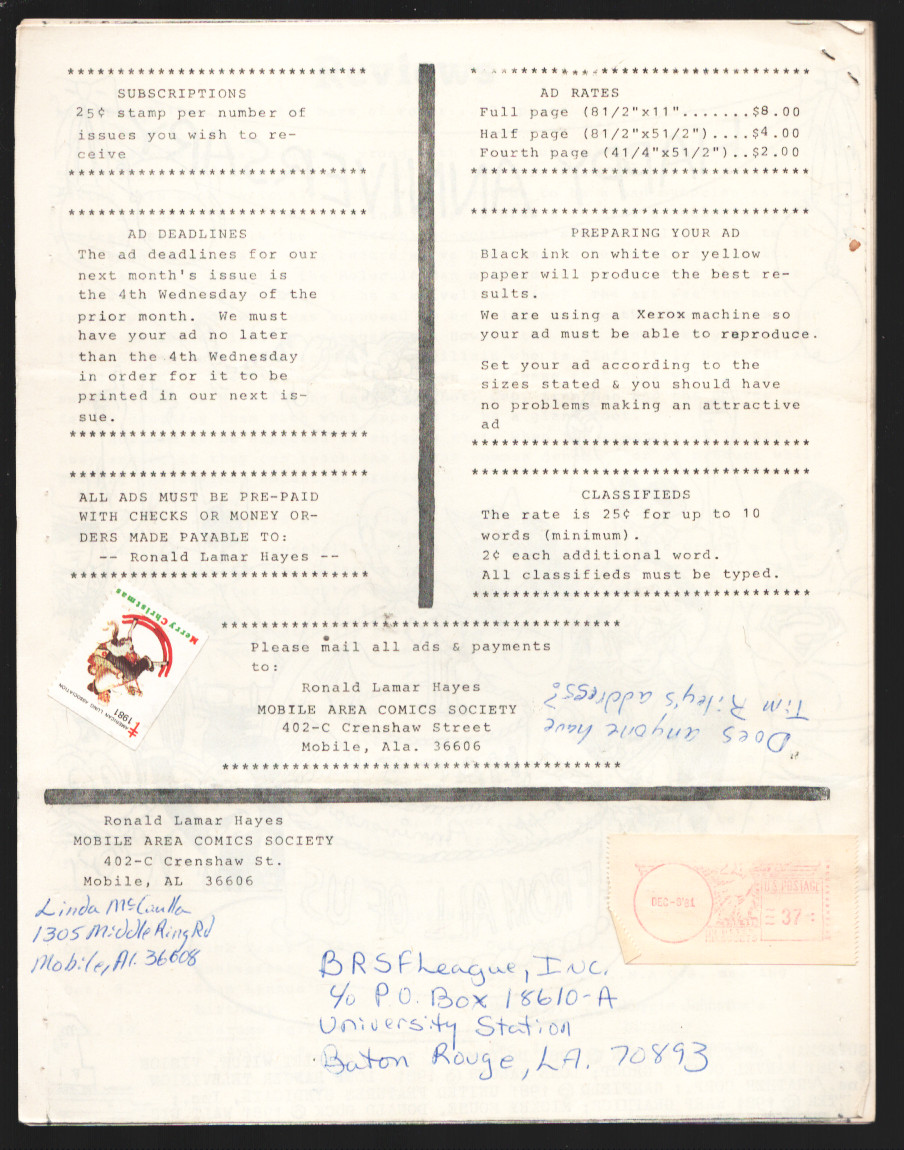 ******************************
SUBSCRIPTIONS
25¢ stamp per number of
issues you wish to re-
ceive
******************************
******************************
AD DEADLINES
The ad deadlines for our
next month's issue is
the 4th Wednesday of the
prior month.  We must
have your ad no later
than the 4th Wednesday
in order for it to be
printed in our next is-
sue.
******************************
******************************
ALL ADS MUST BE PRE-PAID
WITH CHECKS OR MONEY OR-
DERS MADE PAYABLE TO:
-- Ronald Lamar Hayes --
******************************
**********************************
AD RATES
Full page (81/2"x11".......$8.00
Half page (81/2"x51/2")....$4.00
Fourth page (41/4"x51/2")..$2.00
**********************************
**********************************
PREPARING YOUR AD
Black ink on white or yellow
paper will produce the best re-
sults.
We are using a Xerox machine so
your ad must be able to reproduce.
Set your ad according to the
sizes stated & you should have
no problems making an attractive
ad
**********************************
**********************************
CLASSIFIEDS
The rate is 25¢ for up to 10
words (minimum).
2¢ each additional word.
All classifieds must be typed.
**********************************
Merry Christmas
AMERICAN LUNG ASSOCIATION
1981
****************************************
Please mail all ads & payments
to:
Ronald Lamar Hayes
MOBILE AREA COMICS SOCIETY
402-C Crenshaw Street
Mobile, Ala. 36606
****************************************
"Does anyone have
Tim Riley's address?
Ronald Lamar Hayes
MOBILE AREA COMICS SOCIETY
402-C Crenshaw St.
Mobile, AL  36606
Linda
1305 Middle Ring Rd
Mobile, Al. 36608
DEC-8'81
U.S. POSTAGE
37
BRSFLeague, Inc.
c/o P.O. Box 18610-A
University Station
Baton Rouge, LA. 70893